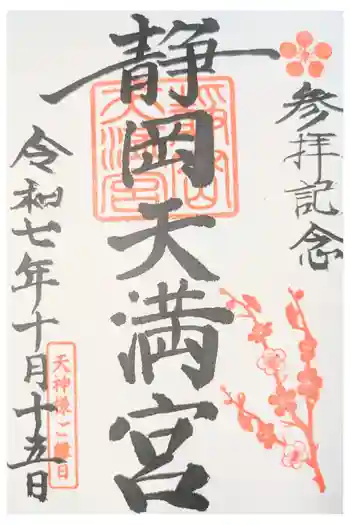 参拝記念
静岡天満宮
令和七年十月十五日
天神様ご縁日